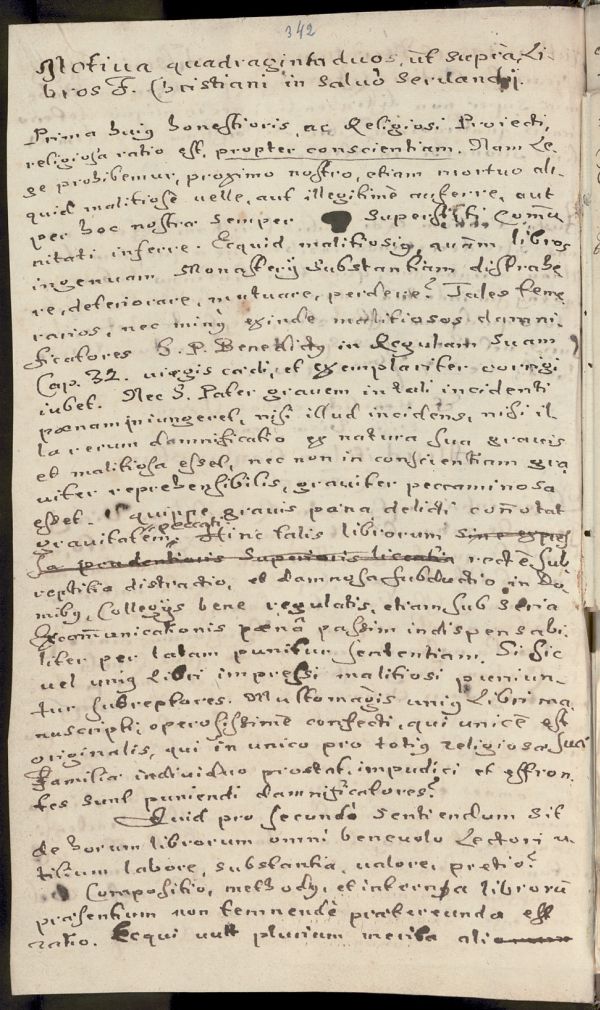 342
Motiva quadraginta duos, ut suprà, Li-
bros F. Christiani in salvo servandi.
Prima huiꝰ honestioris, ac Religiosi Proiecti,
religiosa ratio est, propter conscientiam. Nam Le-
ge prohibemur, proximo nostro, etiam mortuo ali-
quid malitiosè velle, aut illegitimè auferre, aut
per hoc nostræ semper superstiti Comu-
nitati inferre. Ecquid malitiosiꝰ, quàm libros
ingenuam Monasterij substantiam distrahe-
re, deteriorare, mutuare, perdere? Tales teme-
rarios, nec minꝰ exinde malitiosos damni-
ficatores S. P. Benedictꝰ in Regulam suam
Cap. 32. virgis cædi, et exemplariter corrigi
iubet. Nec S. Pater gravem in tali incidenti
pœnam injungeret, nisi illud incidens, nisi il-
la rerum damnificatio ex natura sua gravis
et malitiosa esset, nec non in conscientiam gra-
viter reprehensibilis, graviter peccaminosa
esset. quippe, gravis pœna delicti connotat
gravitatem peccati. Hinc talis librorum sine expres-
sa prudentioris Superioris licentia rectè sub-
reptitia distractio, et damnosa subductio in Do-
mibꝰ, Collegijs bene regulatis, etiam sub seria
Excommunicationis pœna passim indispensabi-
liter per latam punitur sententiam. Si sic
vel uniꝰ libri impressi malitiosi puniun-
tur subreptores. Multomagis uniꝰ Libri ma-
nuscripti, operosissimè confecti, qui unicè est
originalis, qui in unico pro totiꝰ religiosæ suæ
Familiæ individuo prostat, impudici et effron-
tes sunt puniendi damnificatores?
Quid pro secundò sentiendum sit
de horum librorum omni benevolo Lectori u-
tilium labore, substantia, valore, pretio?
Compositio, methodꝰ, et interna librorum
præsentium non temnendè prætereunda est
ratio. Ecqui vult plurium merita ali